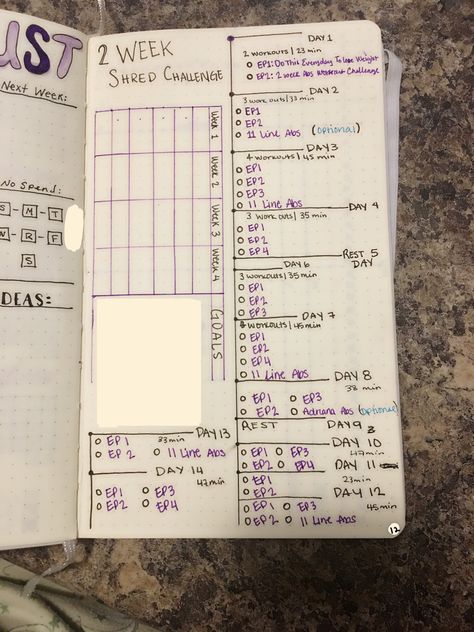 UST
Next Week:
No Spend:
S - M - T
W - R - F
S
IDEAS:
2 WEEK
SHRED CHALLENGE
Week 1
Week 2
Week 3
Week 4
GOALS
DAY 1
2 workouts | 23 min
EP1: Do This Everyday To Lose Weight
EP2: 2 week Abs Workout Challenge
DAY 2
3 workouts | 33 min
EP1
EP2
11 Line Abs (optional)
DAY 3
4 workouts | 45 min
EP1
EP2
EP3
11 Line Abs
DAY 4
3 workouts | 35 min
EP1
EP2
EP4
REST DAY 5
DAY 6
3 workouts | 35 min
EP1
EP2
EP3
DAY 7
workouts | 45 min
EP1
EP2
EP4
11 Line Abs
DAY 8
38 min
EP1 EP3
EP2 Adriana Abs (optional)
REST DAY 9
DAY 10
47 min
EP1 EP3
EP2 EP4
DAY 11
23 min
EP1
EP2
DAY 12
45 min
EP1 EP3
EP2 11 Line Abs
DAY 13
33 min
EP1
EP2 11 Line Abs
DAY 14
42 min
EP1 EP3
EP2 EP4
12